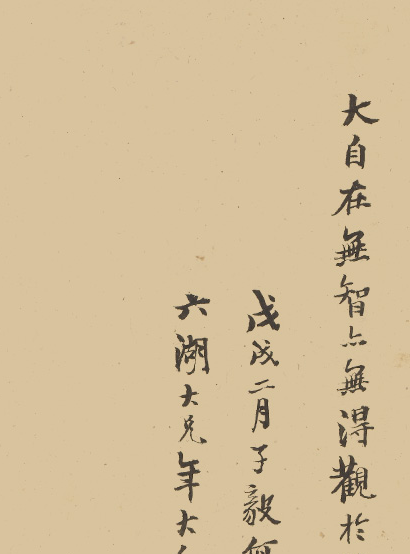 大自在無智亦無得觀於
戊戌二月子毅
六湖大兄年大